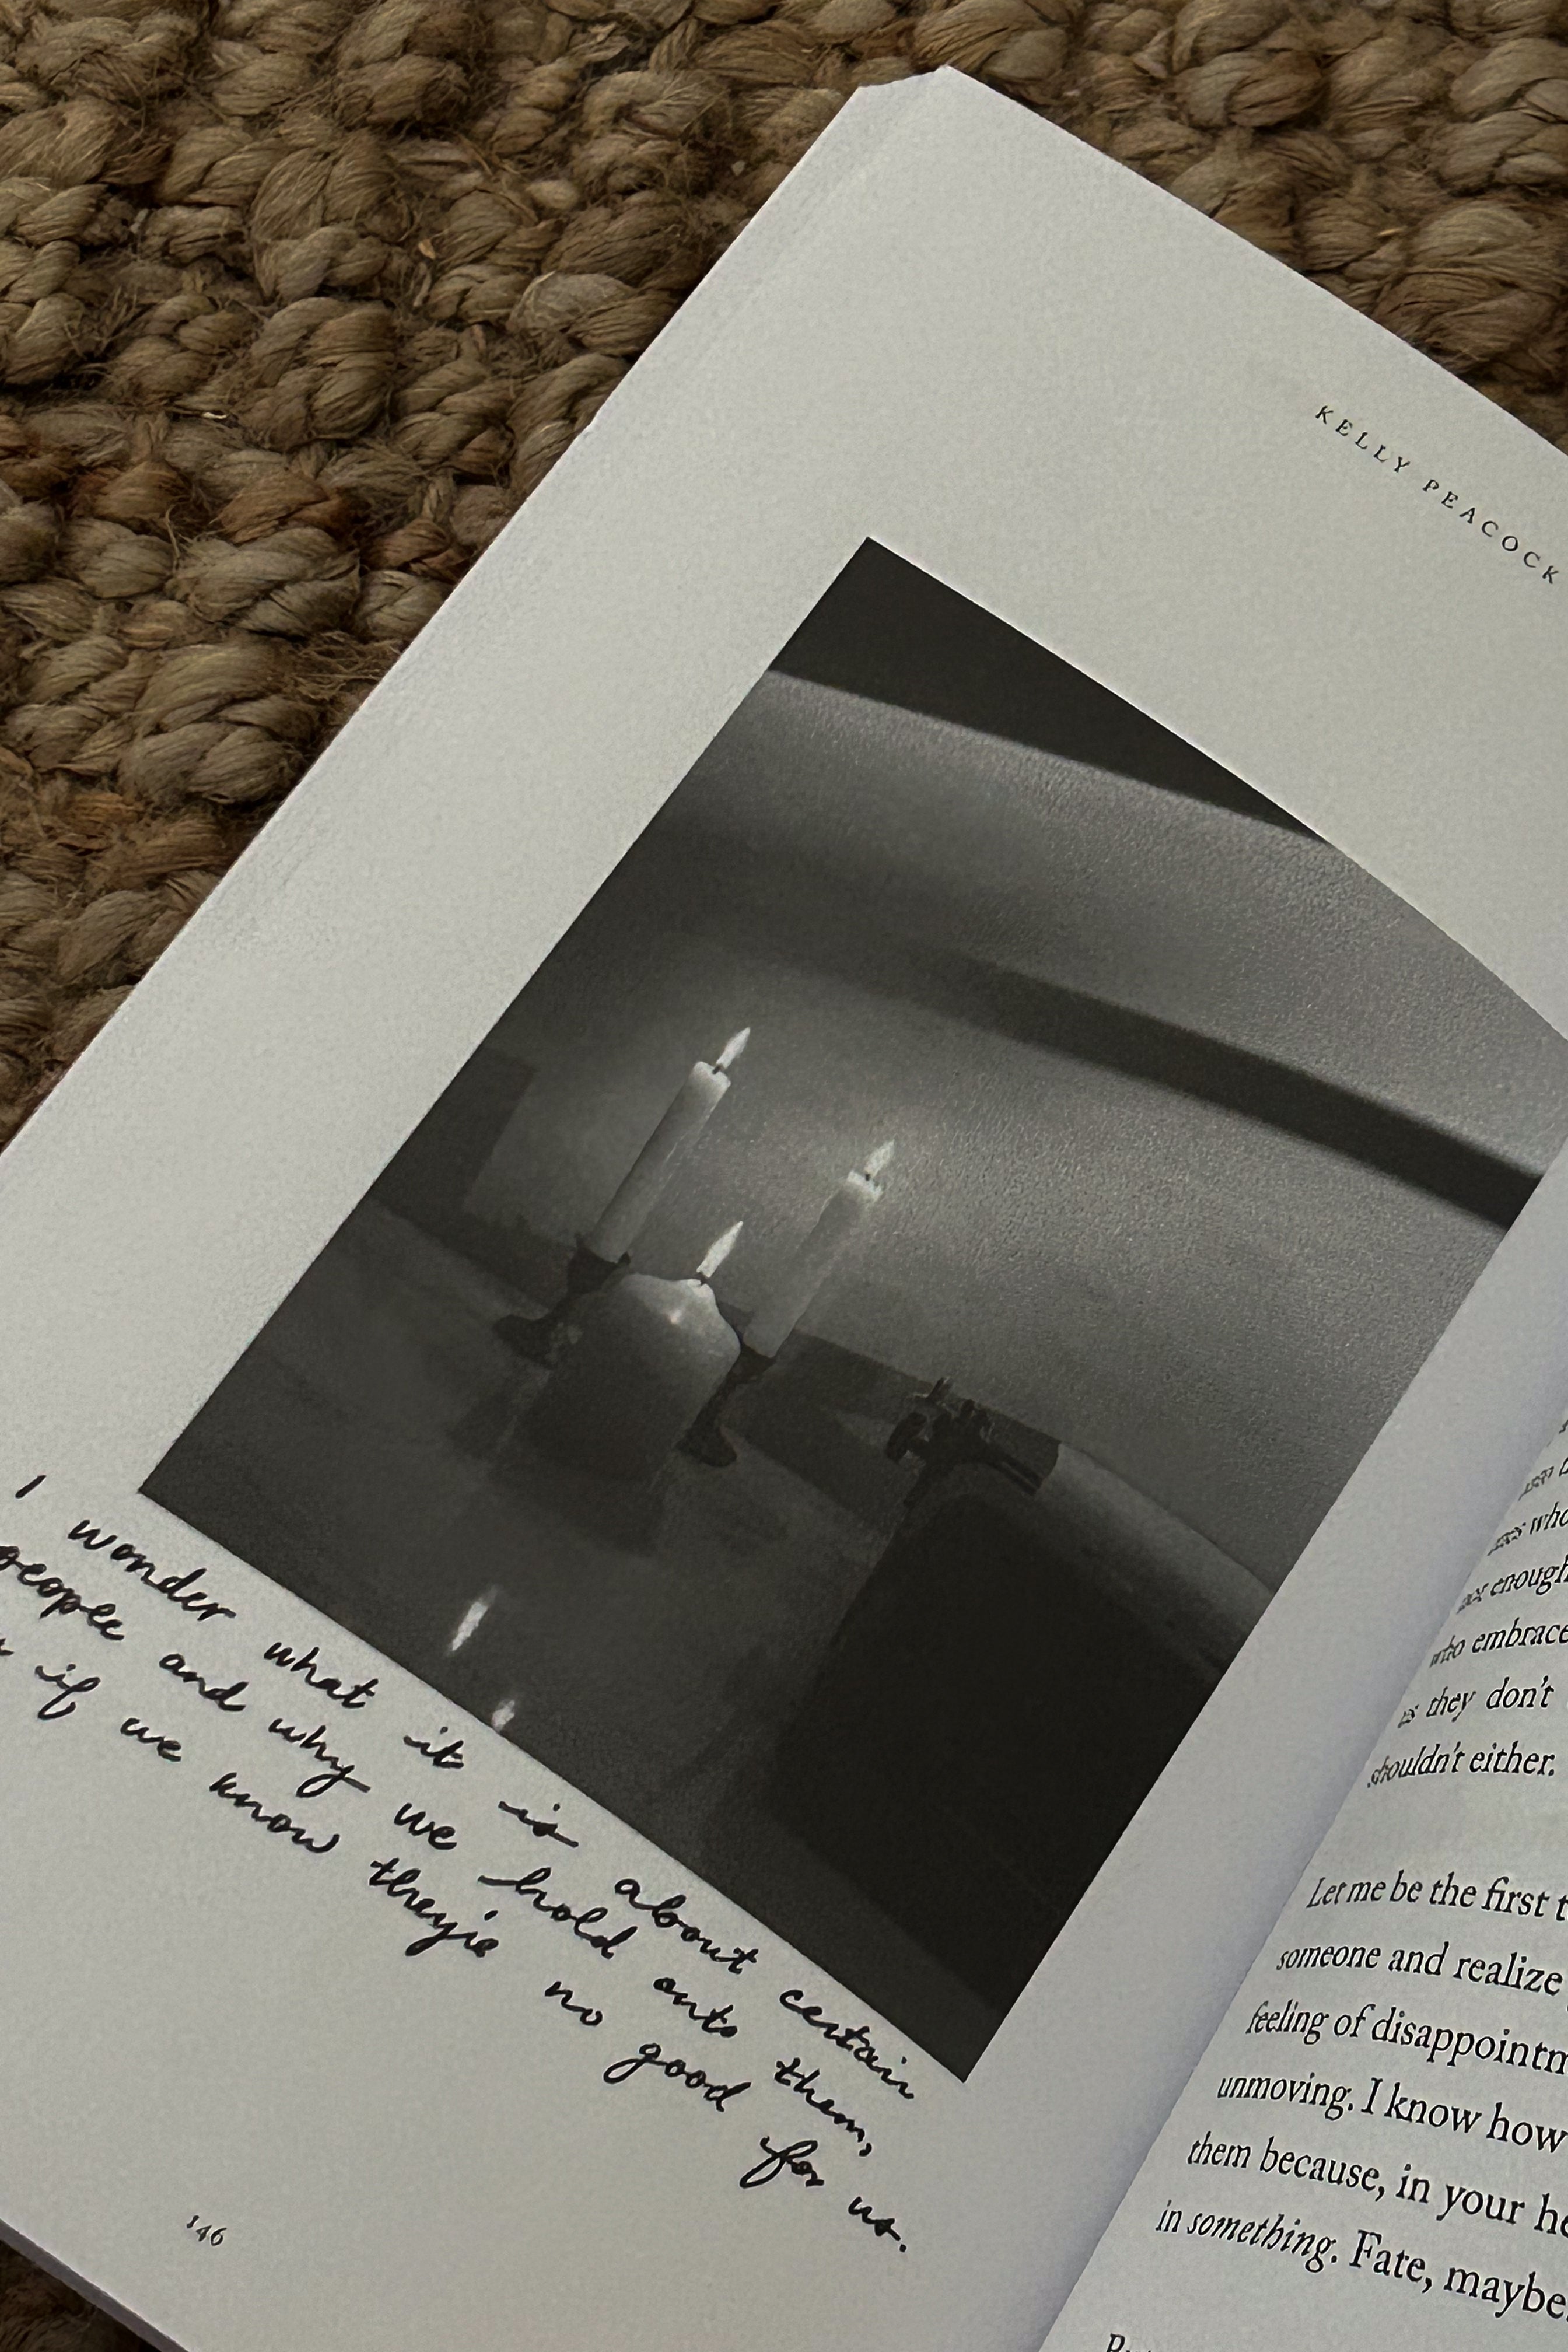 KELLY PEACOCK
I wonder what it is about certain
people and why we hold onto them,
if we know they're no good for us.
146
who
enough
who embrace
they don't
shouldn't either.
Let me be the first
someone and realize
feeling of
unmoving. I know how
them because, in your
in something. Fate, maybe.